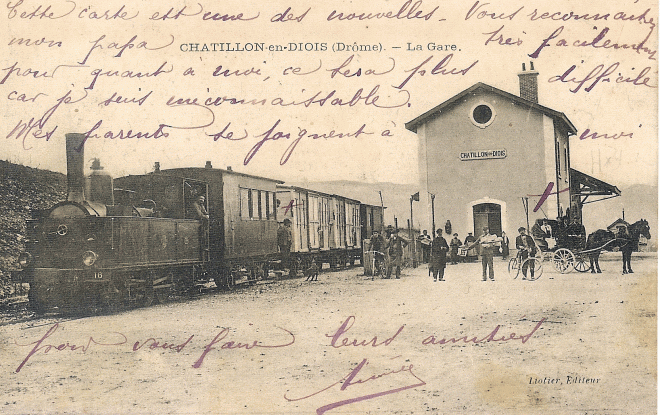 Cette carte est une des nouvelles. Vous reconnaitrez
mon papa très facilement
CHATILLON-en-DIOIS (Drôme). — La Gare.
pour quant à moi, ce sera plus difficile
car je suis méconnaissable.
Mes parents se joignent à moi
CHATILLON-en-DIOIS
16
pour vous faire leurs amitiés
Liotier, Editeur